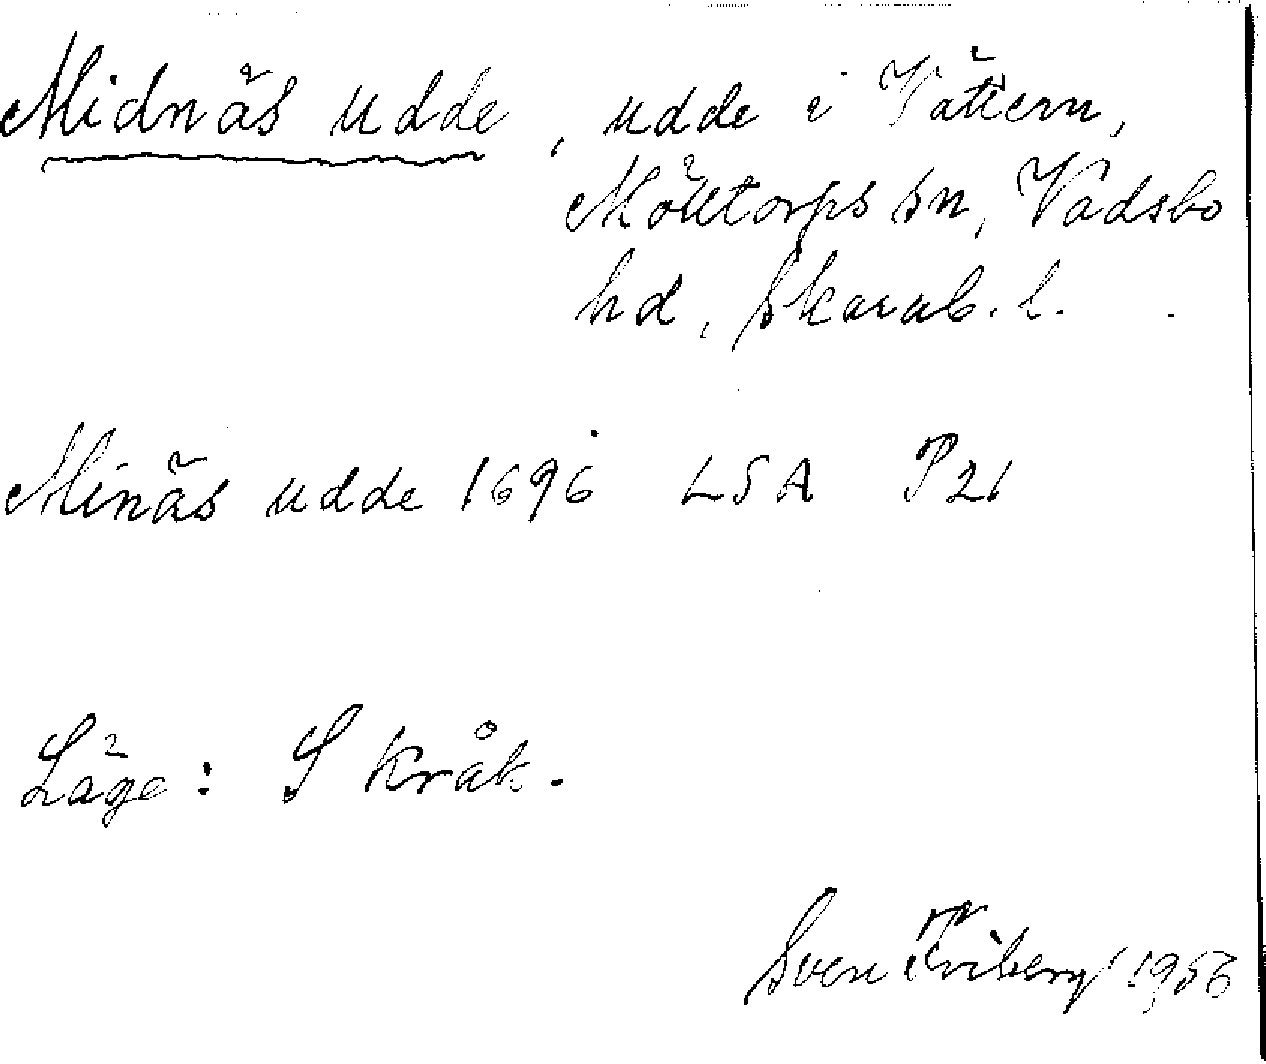 Midnäs udde, udde i Vättern,
Mölltorps sn, Vadsbo
hd, Skarab. l.
Minäs udde 1696 LSA P21
Läge: S Kråk.
Sven Friberg 1956